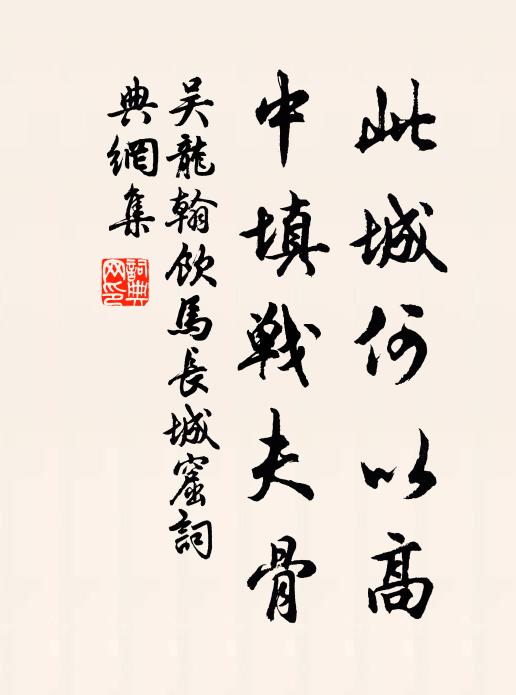 此城何以高
中填戦夫骨
吴龍翰飲馬長城窟詞
典網集
詞典网印